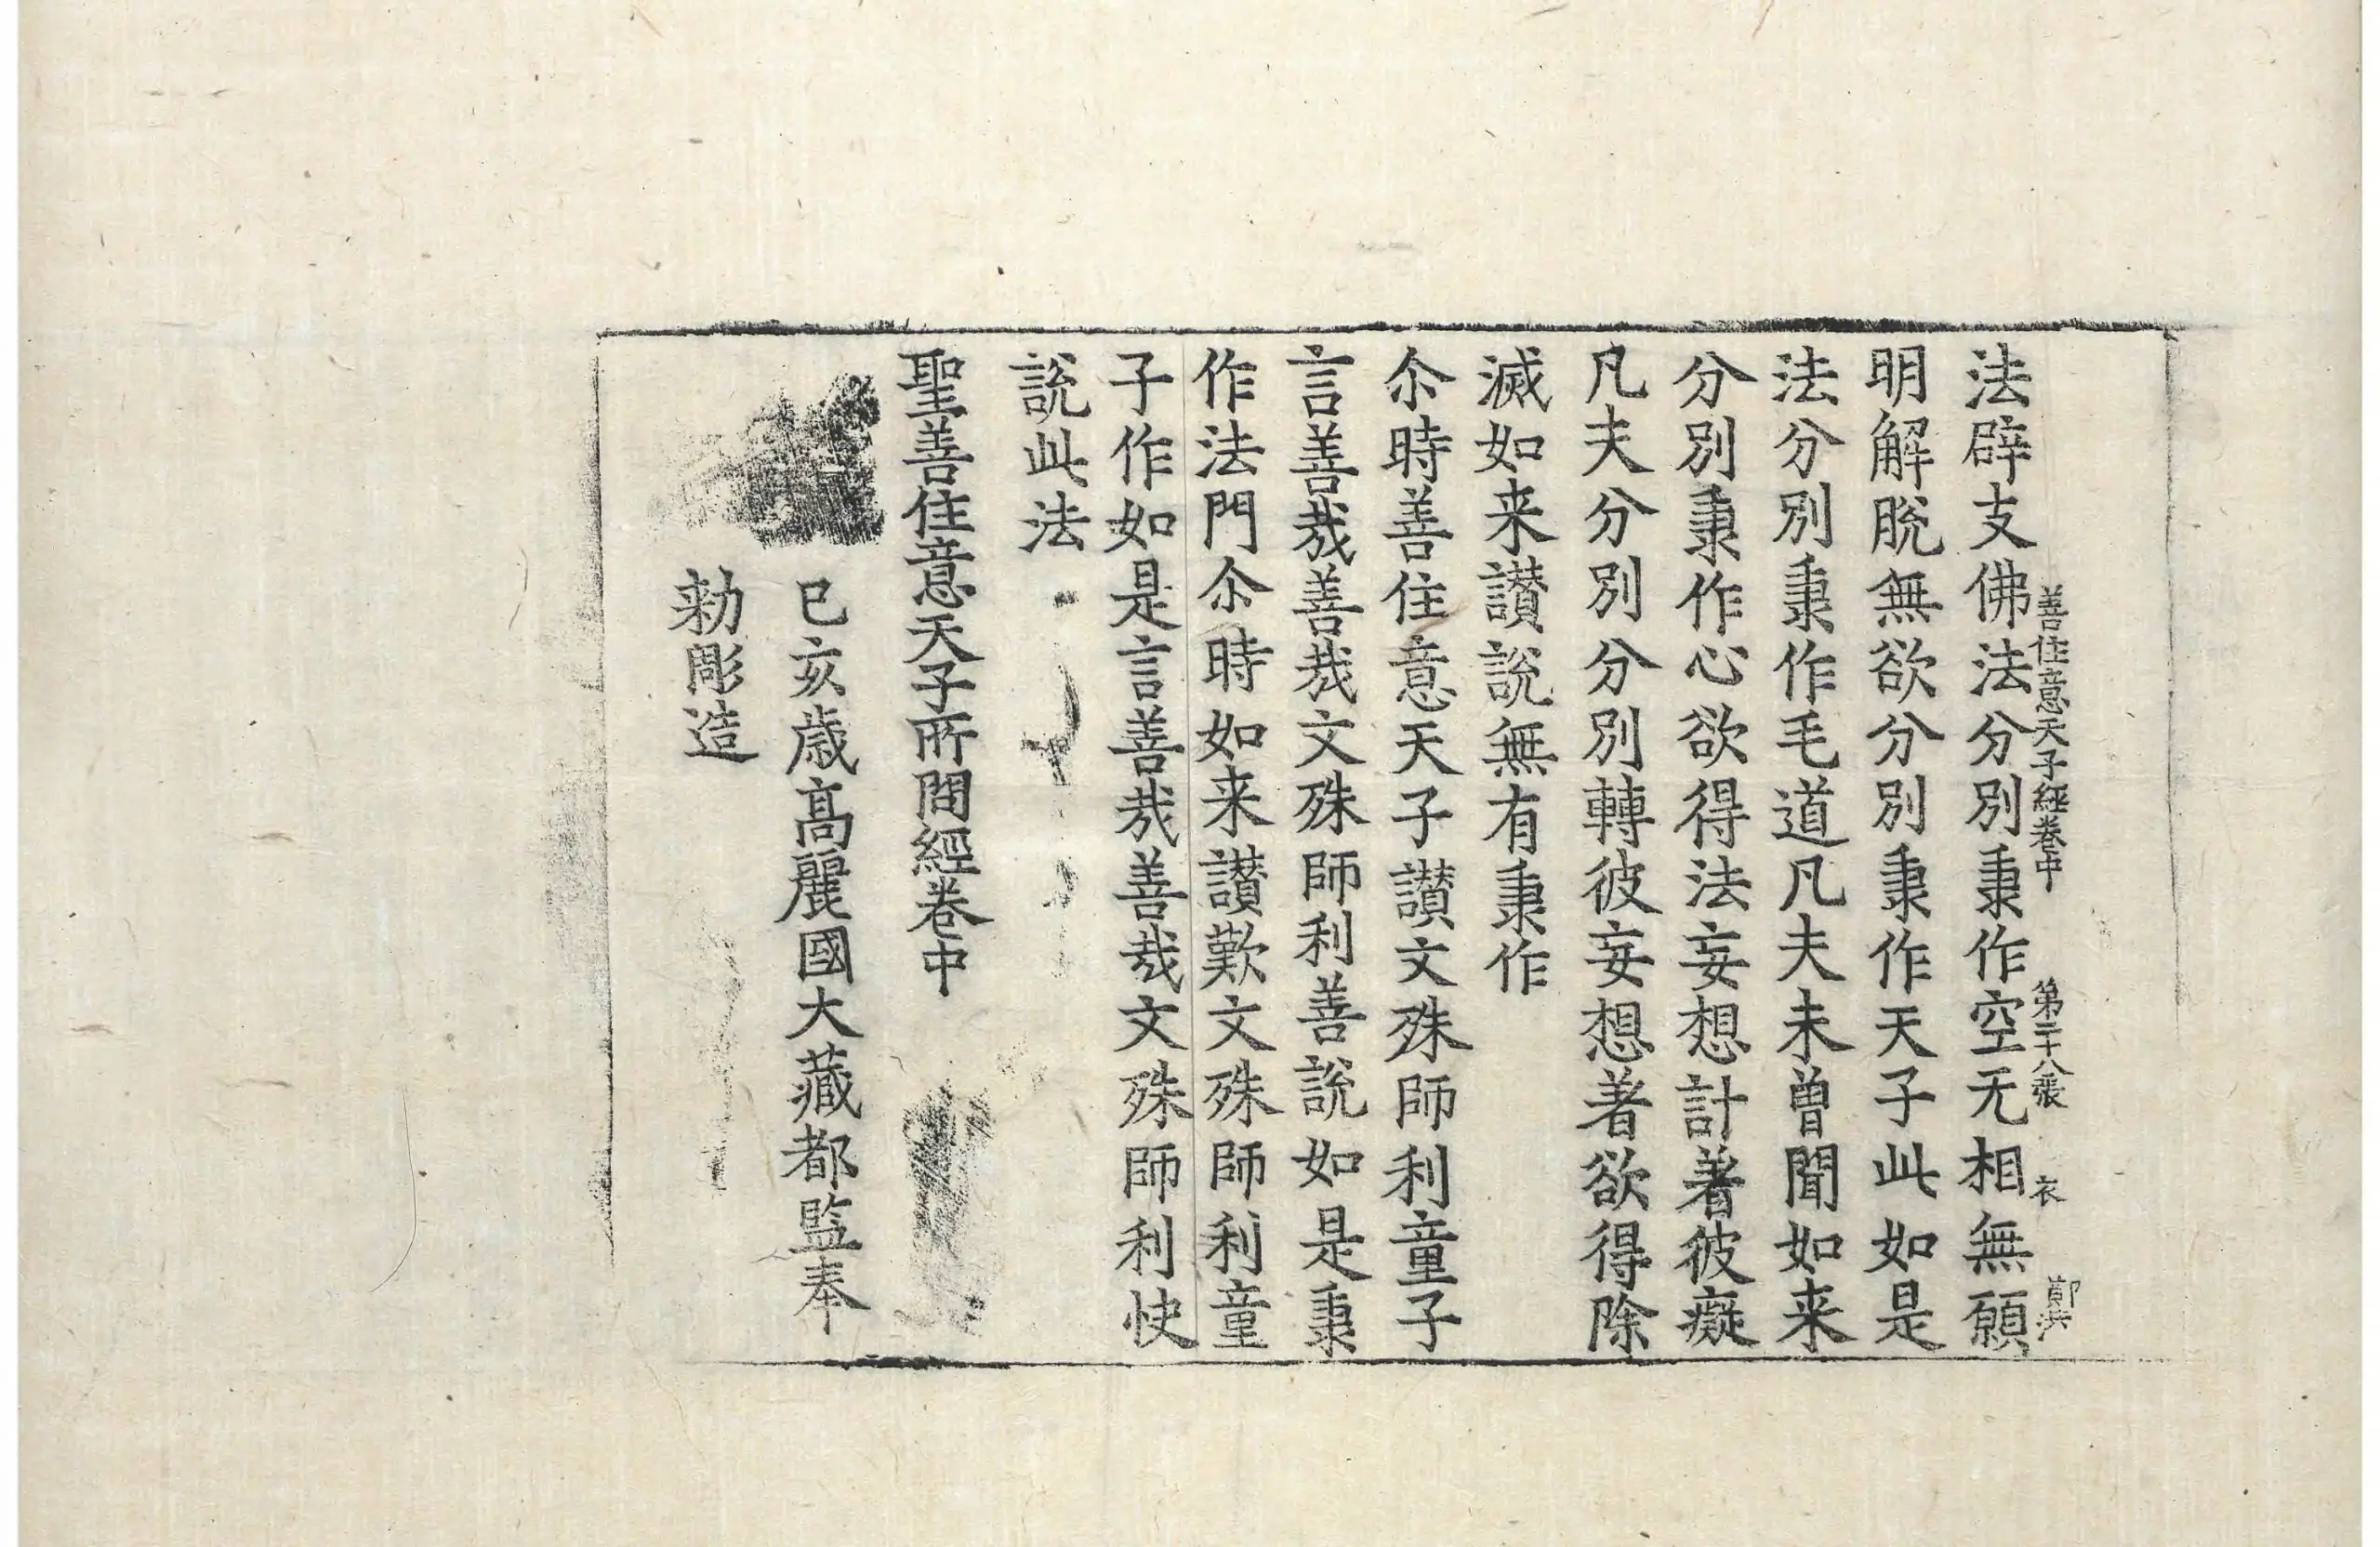 善住意天子經卷中 第二十八張 衣
法辟支佛法分別秉作空无相無願
明解脫無欲分別秉作天子此如是
法分別秉作毛道凡夫未曽聞如来
分別秉作心欲得法妄想計著彼癡
凡夫分別分別轉彼妄想著欲得除
滅如来讃說無有秉作
尒時善住意天子讃文殊師利童子
言善哉善哉文殊師利善說如是秉
作法門尒時如来讃歎文殊師利童
子作如是言善哉善哉文殊師利快
說此法
聖善住意天子所問經卷中
己亥歲高麗國大藏都監奉
勑彫造